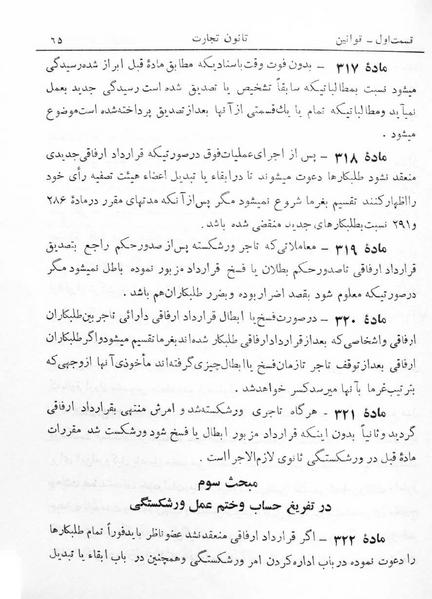 قسمت اول - قوانین قانون تجارت ٦٥
مادۀ ٣١٧ - بدون فوت وقت باسنادیکه مطابق مادۀ قبل ابراز شده رسیدگی
میشود نسبت بمطالباتیکه سابقاً تشخیص یا تصدیق شده است رسیدگی جدید بعمل
نمیآید ومطالباتیکه تمام یا یك قسمتی از آنها بعداز تصدیق پرداخته شده است موضوع
میشود .
مادۀ ٣١٨ - پس از اجرای عملیات فوق درصورتیکه قرارداد ارفاقی جدیدی
منعقد نشود طلبکارها دعوت میشوند تا درابقاء یا تبدیل اعضاء هیئت تصفیه رأی خود
را اظهارکنند تقسیم بغرما شروع نمیشود مگر پس از آنکه مدتهای مقرر درمادۀ ٢٨٦
و٢٩١ نسبت بطلبکارهای جدید منقضی شده باشد.
مادۀ ٣١٩ - معاملاتی که تاجر ورشکسته پس از صدور حکم راجع بتصدیق
قرارداد ارفاقی تاصدور حکم بطلان یا فسخ قرارداد مزبور نموده باطل نمیشود مگر
درصورتیکه معلوم شود بقصد اضرار بوده وبضرر طلبکاران هم باشد .
مادۀ ٣٢٠ - درصورت فسخ یا ابطال قرارداد ارفاقی دارائی تاجر بین طلبکاران
ارفاقی واشخاصی که بعداز قرارداد ارفاقی طلبکار شده اند بغرما تقسیم میشود واگر طلبکاران
ارفاقی بعداز توقف تاجر تا زمان فسخ یا ابطال چیزی گرفته اند مأخوذی آنها از وجهی که
بترتیب غرما بآنها میرسد کسر خواهد شد .
مادۀ ٣٢١ - هرگاه تاجری ورشکسته شد و امرش منتهی بقرارداد ارفاقی
گردید وثانیاً بدون اینکه قرارداد مزبور ابطال یا فسخ شود ورشکست شد مقررات
مادۀ قبل در ورشکستگی ثانوی لازم الاجراست .
مبحث سوم
در تفریغ حساب وختم عمل ورشکستگی
مادۀ ٣٢٢ - اگر قرارداد ارفاقی منعقد نشد عضو ناظر باید فوراً تمام طلبکارها
را دعوت نموده درباب اداره کردن امر ورشکستگی وهمچنین در باب ابقاء یا تبدیل